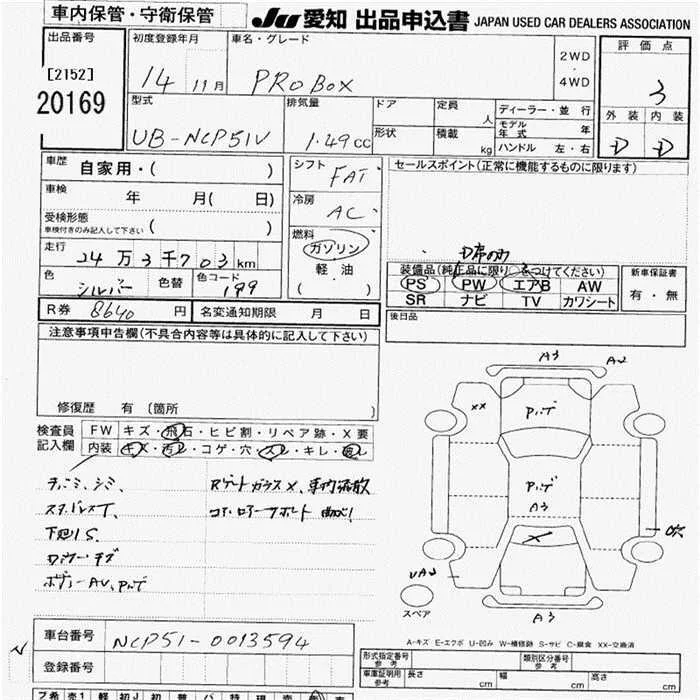 車内保管・守衛保管
JU 愛知 出品申込書 JAPAN USED CAR DEALERS ASSOCIATION
出品番号
[2152]
20169
初度登録年月
14 11月
車名・グレード
PROBOX
2WD
・
4WD
評価点
3
外装 内装
D D
型式
UB-NCP51V
排気量
1.49cc
ドア
定員
人
形状
積載
kg
ディーラー・並行
モデル年式 年
ハンドル 左・右
車歴
自家用・( )
車検
年 月(日)
受検形態
車検付きのみ記入して下さい ( )
走行
24万3千703km
色
シルバー
色替
色コード
199
シフト
FAT
冷房
AC
燃料
ガソリン
軽・油
( )
セールスポイント(正常に機能するものに限ります)
装備品(純正品に限り○をつけてください)
PS PW エアB AW
SR ナビ TV カワシート
新車保証書
有・無
R券 8640円
名変通知期限 月 日
後日品
注意事項申告欄(不具合内容等は具体的に記入して下さい)
修復歴 有 〔箇所 〕
検査員記入欄
FW キズ・飛石・ヒビ割・リペア跡・X要
内装 キズ・汚レ・コゲ・穴・スレ・キレ・破レ
シミ、
下廻りS
A3
A2
XX
A3
UA2
A3
スペア
A-キズ E-エクボ U-凹み W-補修跡 S-サビ C-腐食 XX-交換済
車台番号
NCP51-0013594
登録番号
形式指定番号
参考
類別区分番号
参考
車庫証明用
参考
長さ cm
幅 cm
高さ cm